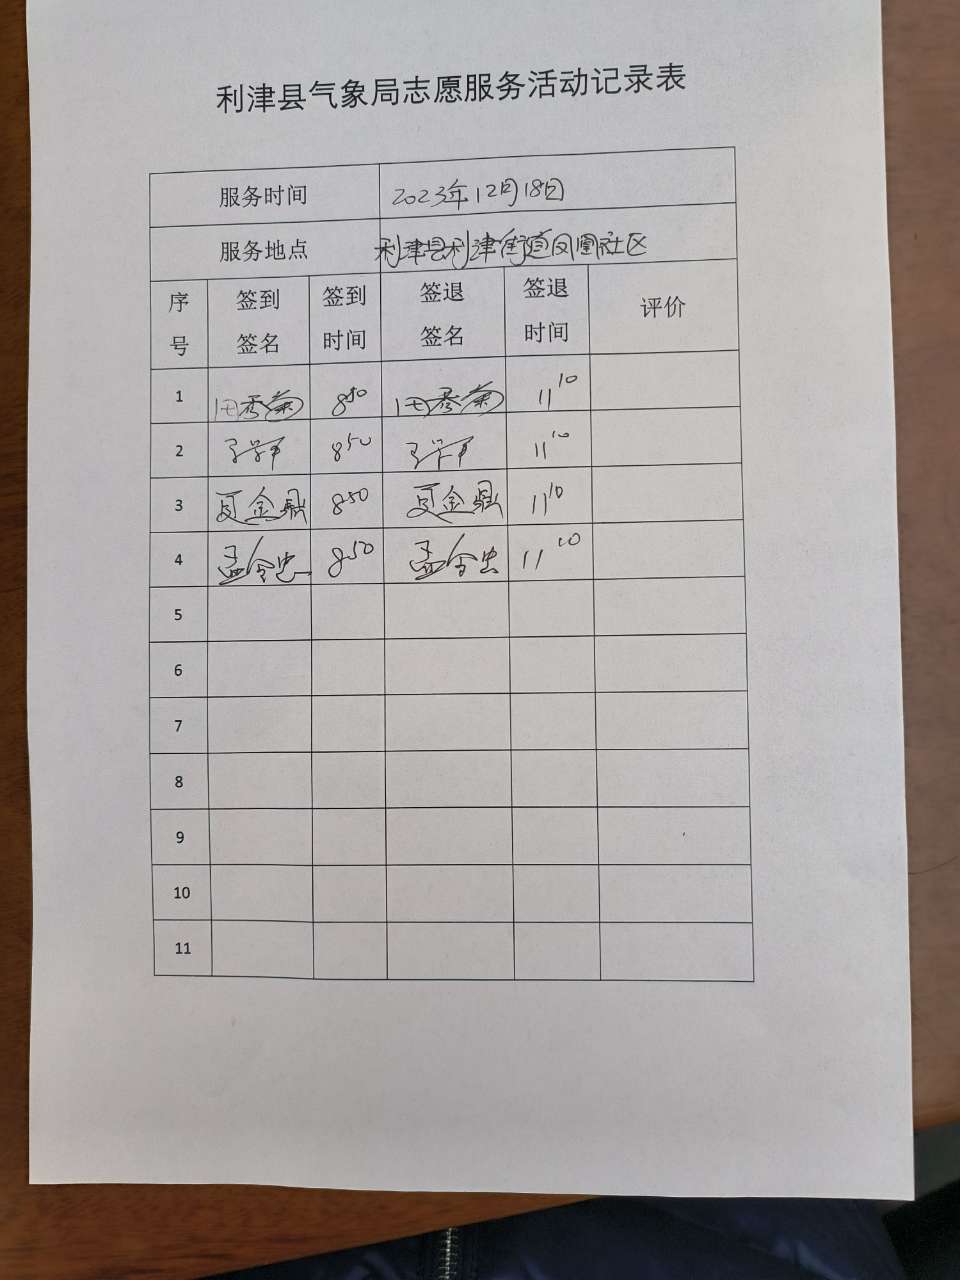 利津县气象局志愿服务活动记录表
服务时间 2023年12月18日
服务地点 利津县利津街道凤凰社区
序号 签到签名 签到时间 签退签名 签退时间 评价
1 田秀菊 8 50 田秀菊 11 10
2 8 50 11 10
3 夏金鼎 8 50 夏金鼎 11 10
4 孟令忠 8 50 孟令忠 11 10
5
6
7
8
9
10
11